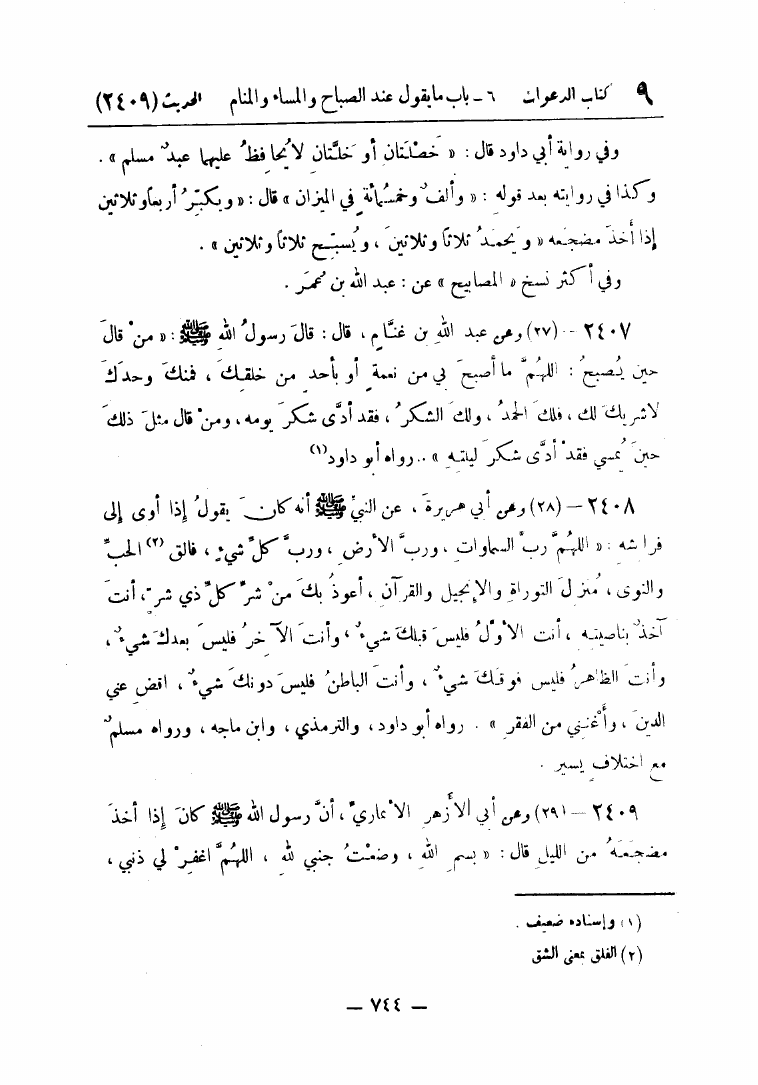 ٩ كتاب الدعوات ٦ - باب ما يقول عند الصباح والمساء والمنام الحديث (٢٤٠٩)
وفي رواية أبي داود قال : « خَصْلَتان أو خَلَّتانِ لا يُحافِظُ عليهما عبدٌ مسلم » .
وكذا في روايته بعد قوله : « وألفٌ وخمسُمائةٍ في الميزان » قال : « ويكبّرُ أربعاً وثلاثين
إذا أَخذَ مضجَعه « ويَحمَدُ ثلاثاً وثلاثينَ ، ويُسبّح ثلاثاً وثلاثين » .
وفي أكثر نسخ « المصابيح » عن : عبد الله بن عُمَر .
٢٤٠٧ – (٢٧) وعن عبد اللهِ بن غنَّامٍ ، قال : قالَ رسولُ اللهِ ﷺ : « منْ قالَ
حين يُصبحُ : اللهُمَّ ما أصبحَ بي من نعمةٍ أو بأحدٍ من خلقِكَ ، فمنكَ وحدَكَ
لا شريكَ لك ، فلكَ الحمدُ ، ولكَ الشكرُ ، فقد أدَّى شكرَ يومه ، ومنْ قال مثلَ ذلكَ
حينَ يُمسي فقدْ أدَّى شكرَ ليلتِه » .. رواه أبو داود(١)
٢٤٠٨ – (٢٨) وعن أبي هريرةَ ، عن النبيِّ ﷺ أنه كانَ يقولُ إذا أوى إلى
فراشه : « اللهُمَّ ربَّ السماوات ، وربَّ الأرضِ ، وربَّ كلِّ شيءٍ ، فالق (٢) الحبِّ
والنوى ، مُنزلَ التوراةِ والإنجيل والقرآن ، أعوذُ بكَ منْ شرِّ كلِّ ذي شرّ ، أنتَ
آخذٌ بناصيته ، أنت الأوَّلُ فليسَ قبلكَ شيءٌ ، وأنتَ الآخرُ فليسَ بعدكَ شيءٌ ،
وأنتَ الظاهرُ فليس فوقكَ شيءٌ ، وأنتَ الباطنُ فليسَ دونكَ شيءٌ ، اقضِ عني
الدينَ ، وأَغْنِني من الفقرِ » . رواه أبو داود ، والترمذي ، وابن ماجه ، ورواه مسلمٌ
مع اختلافٍ يسيرٍ .
٢٤٠٩ – (٢٩) وعن أبي الأزهرِ الأنماريِّ ، أنَّ رسول الله ﷺ كانَ إذا أخذَ
مضجَعَهُ من الليلِ قال : « بسمِ اللهِ ، وضعْتُ جنبي للهِ ، اللهُمَّ اغفرْ لي ذنبي ،
(١) وإسناده ضعيف .
(٢) الفلق بمعنى الشق
– ٧٤٤ –